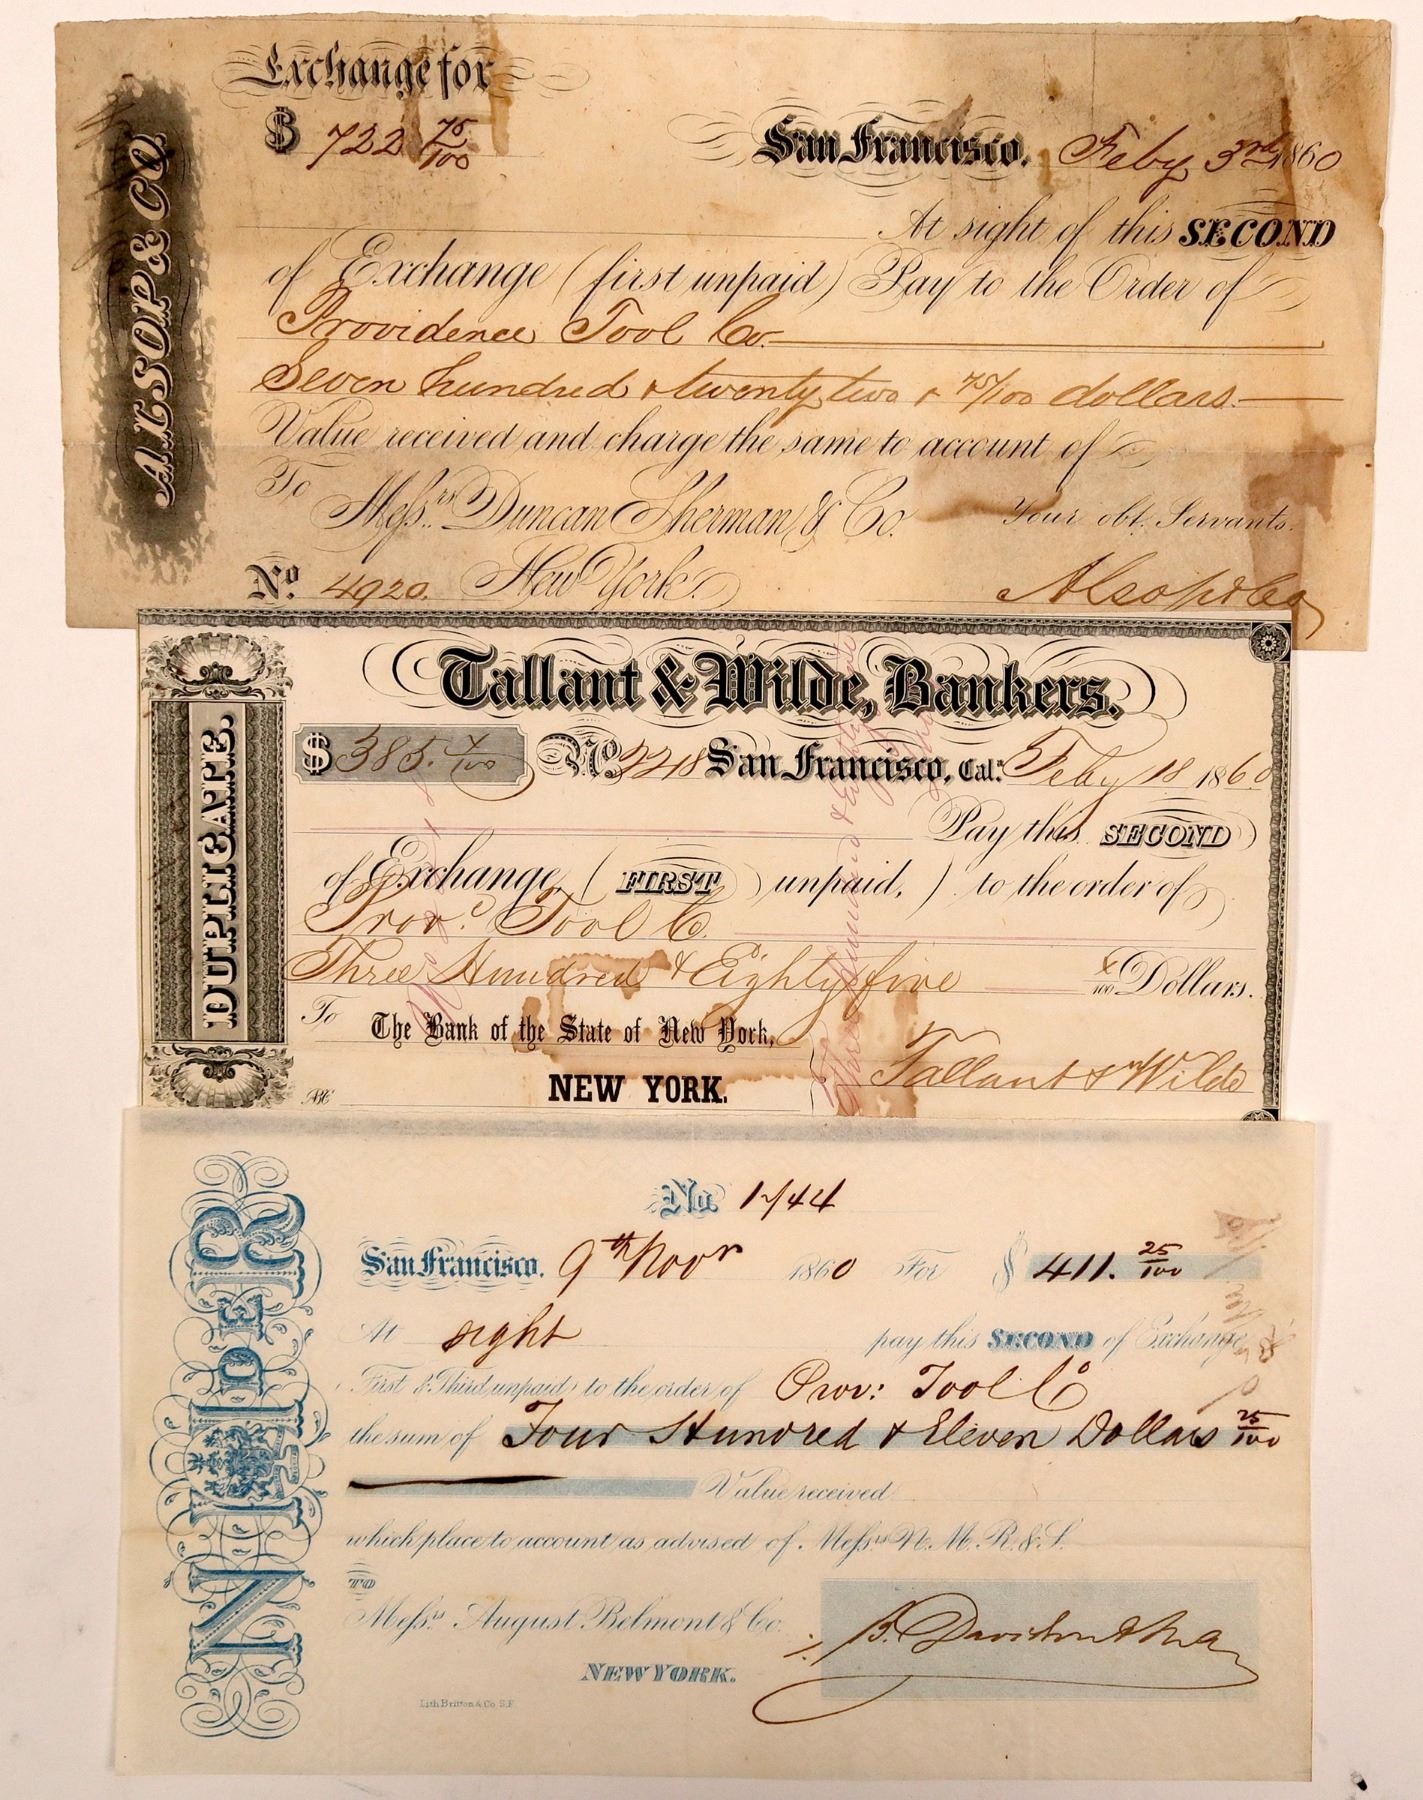 Exchange for
$ 722 75/100
ALSOP & CO.
San Francisco, Feby 3rd 1860
At sight of this SECOND
of Exchange (first unpaid) Pay to the Order of
Providence Tool Co.
Seven hundred & twenty two & 75/100 dollars
Value received and charge the same to account of
To Messrs. Duncan Sherman & Co. Your obt. Servants.
No. 4920. New York. Alsop & Co
Tallant & Wilde, Bankers.
DUPLICATE.
$ 385. 4/100 No. 2248 San Francisco, Cal: Feby 18 1860
Pay this SECOND
of Exchange, (FIRST unpaid,) to the order of
Provc. Tool Co.
Three Hundred & Eighty five 4/100 Dollars.
To The Bank of the State of New York,
NEW YORK. Tallant & Wilde
No. 1744
San Francisco, 9th Novr 1860 For $ 411. 25/100
At sight pay this SECOND of Exchange
First & Third unpaid to the order of Prov: Tool Co
the sum of Four Hundred & Eleven Dollars 25/100
Value received
which place to account as advised of. Messrs N. M. R. & S.
TO
Messrs. August Belmont & Co.
NEW YORK.
Lith Britton & Co S.F.